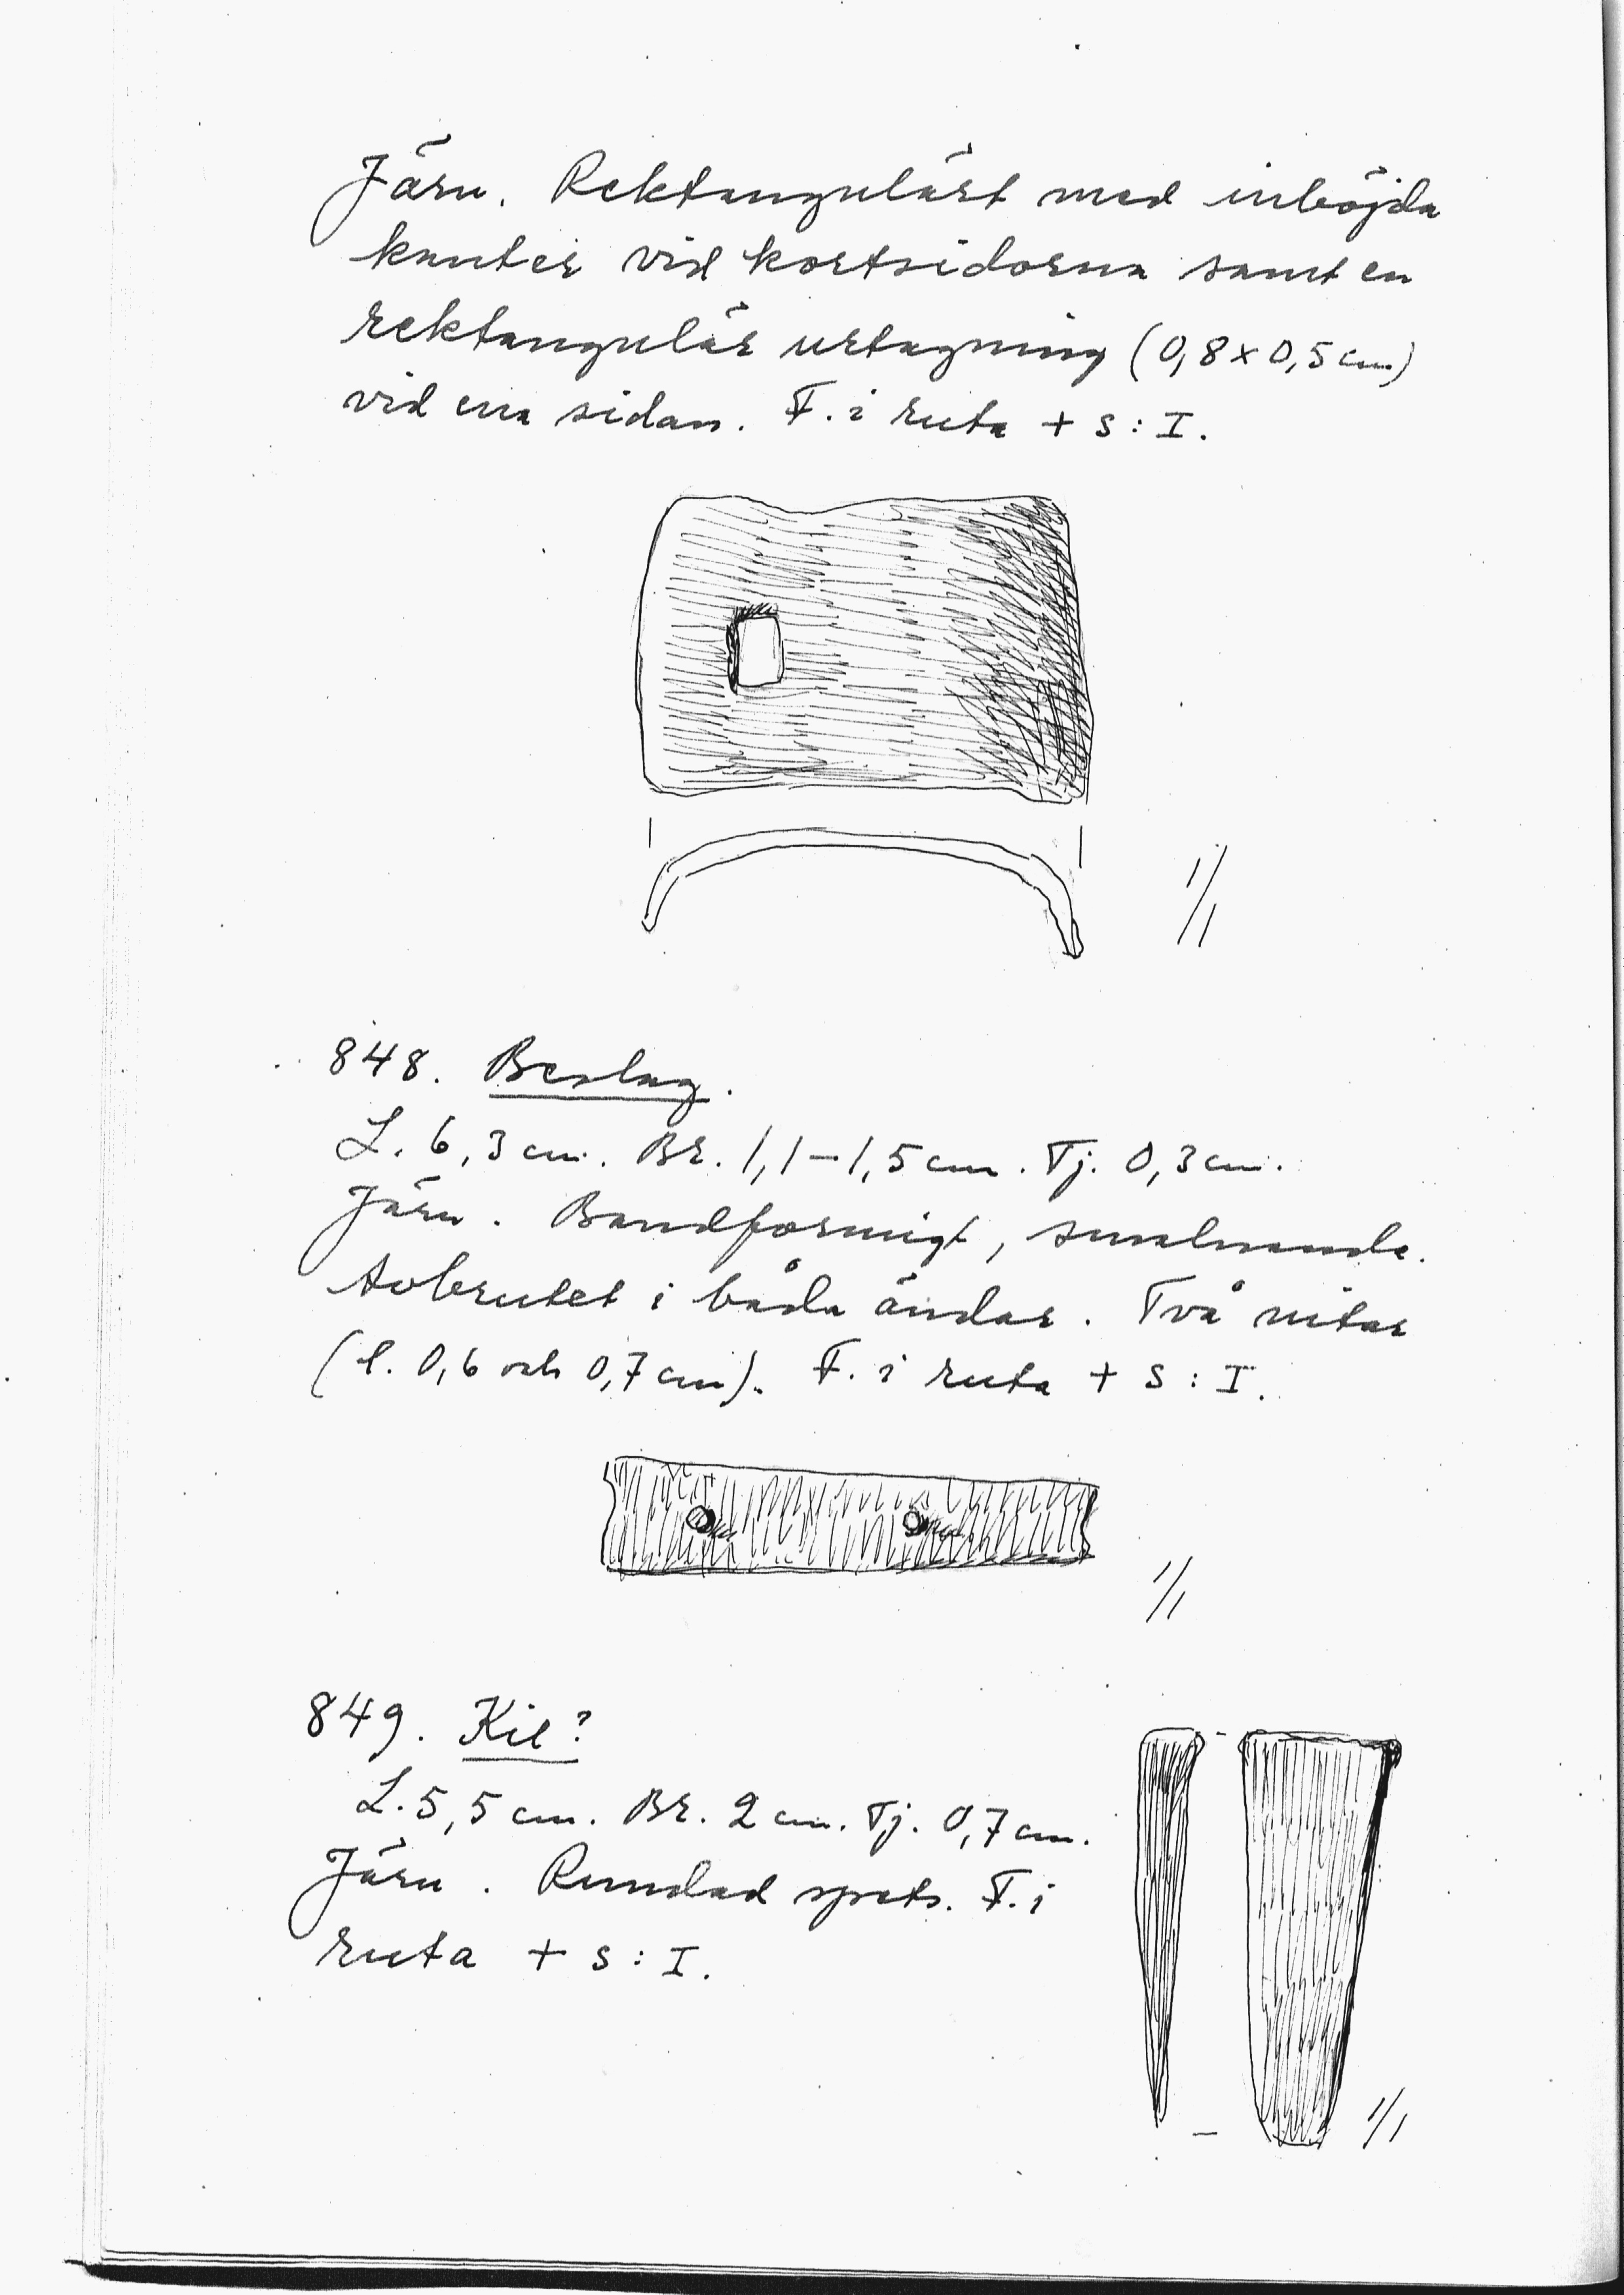 Järn. Rektangulärt med inböjda
kanter vid kortsidorna samt en
rektangulär urtagning (0,8 x 0,5 cm)
vid ena sidan. F. i ruta + s : I.
1/1
848. Beslag.
L. 6,3 cm. Br. 1,1-1,5 cm. Tj. 0,3 cm.
Järn. Bandformigt, smalnande.
Avbrutet i båda ändar. Två nitar
(l. 0,6 och 0,7 cm). F. i ruta + s : I.
1/1
849. Kil?
L. 5,5 cm. Br. 2 cm. Tj. 0,7 cm.
Järn. Rundad spets. F. i
ruta + s : I.
1/1